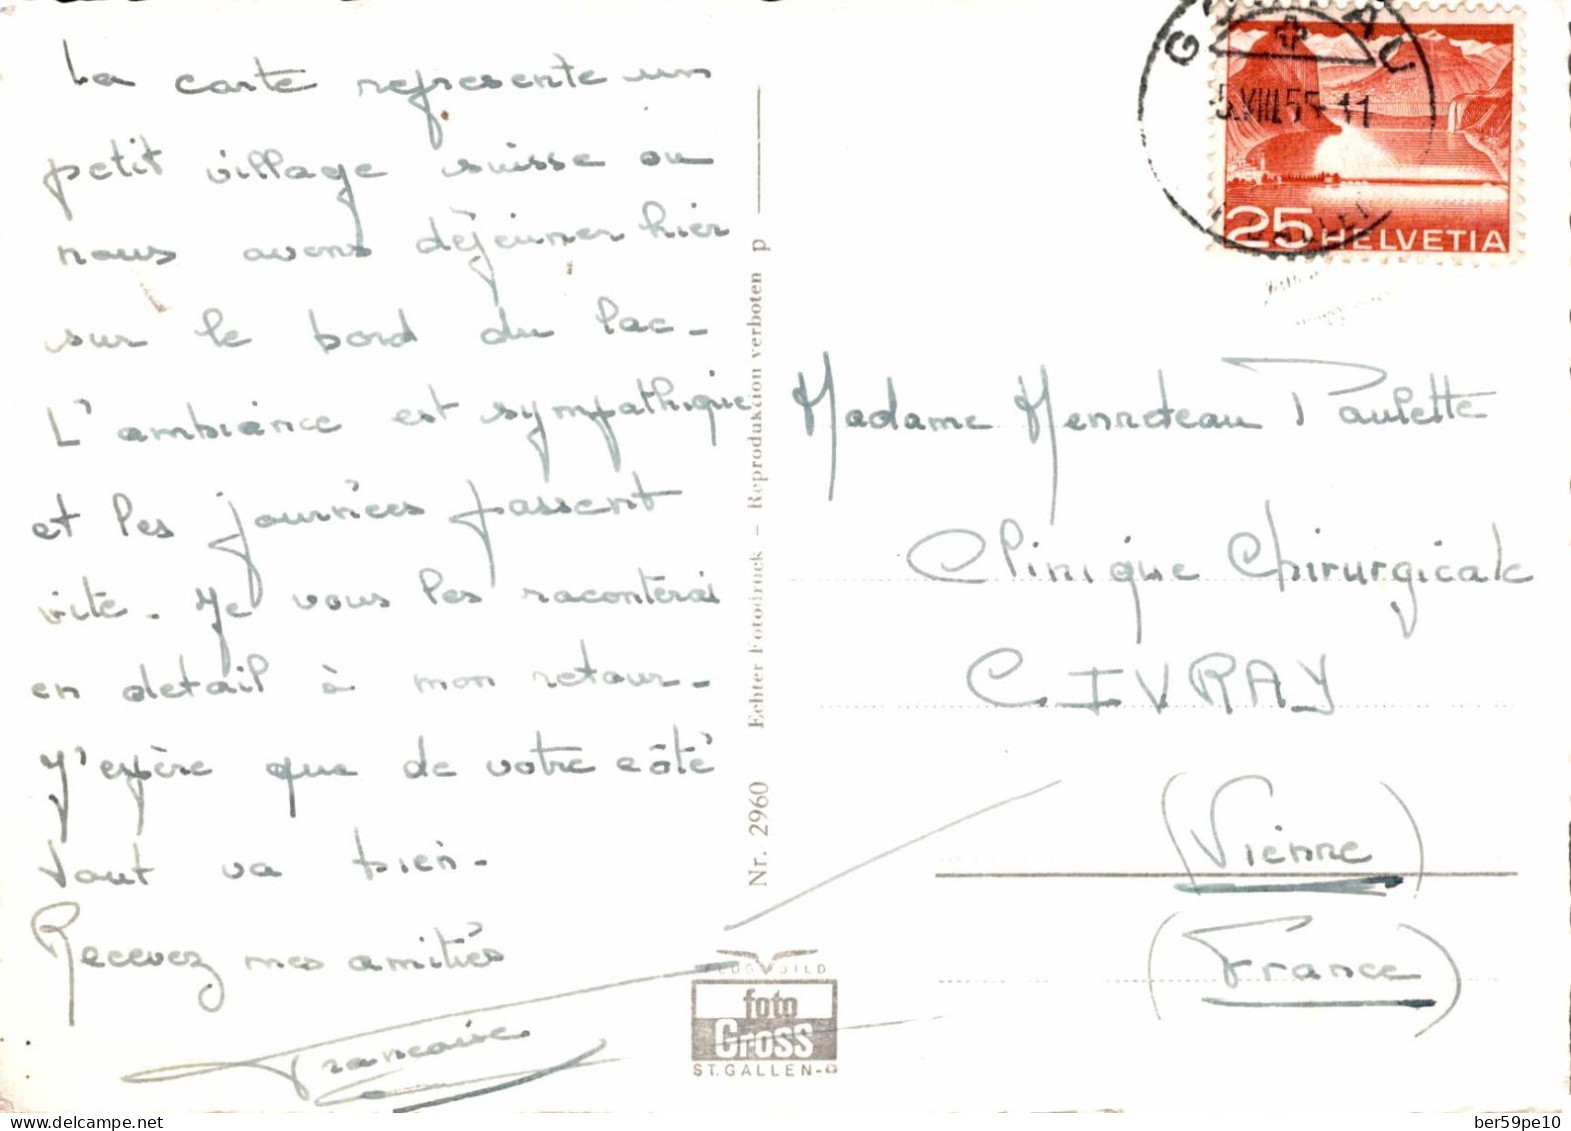 La carte represente un
petit village suisse ou
nous avons déjeuner hier
sur le bord du lac -
L'ambiance est sympathique
et les journées passent
vite - Je vous les raconterai
en detail à mon retour -
J'espère que de votre côté
tout va bien -
Recevez mes amitiés
Francoise
Nr. 2960 Echter Fotodruck – Reproduktion verboten p
FLUGBILD
foto
Gross
ST. GALLEN
5.VIII.55-11
25 HELVETIA
Madame Henreteau Paulette
Clinique Chirurgicale
CIVRAY
(Vienne)
(France)
www.delcampe.net
ber59pe10